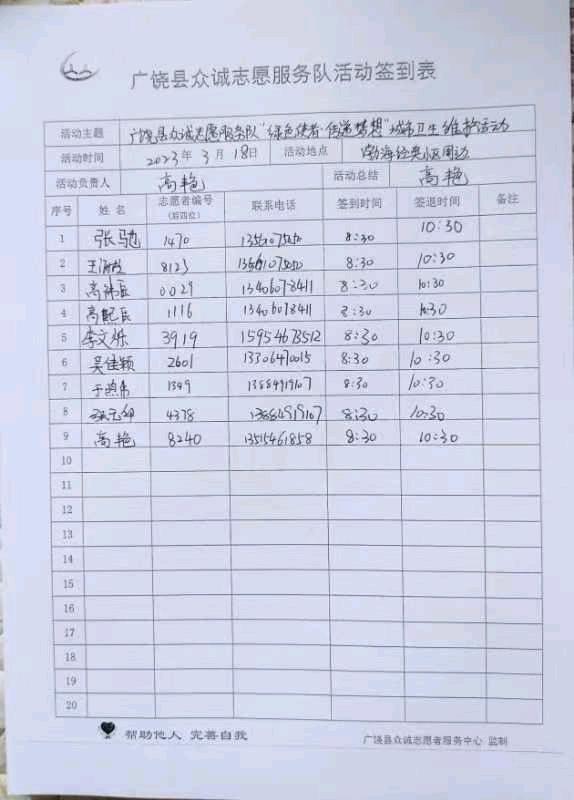 广饶县众诚志愿服务队活动签到表
活动主题 广饶县众诚志愿服务队"绿色使者·传递梦想"城市卫生维护活动
活动时间 2023年3月18日 活动地点 渤海经典小区周边
活动负责人 高艳 活动总结 高艳
序号 姓名 志愿者编号 联系电话 签到时间 签退时间 备注
(后四位)
1 张驰 1470 8:30 10:30
2 8123 8:30 10:30
3 0029 13406078411 8:30 10:30
4 1116 13406078411 8:30 10:30
5 李文烁 3919 15954673512 8:30 10:30
6 吴佳颖 2601 13306470015 8:30 10:30
7 1349 13884919107 8:30 10:30
8 4378 13884919107 8:30 10:30
9 高艳 8240 13515461858 8:30 10:30
10
11
12
13
14
15
16
17
18
19
20
帮助他人 完善自我 广饶县众诚志愿者服务中心 监制